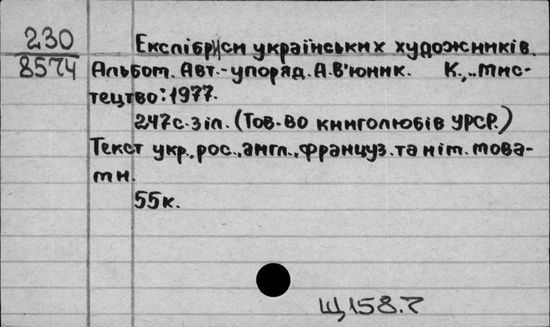 230
8574
Експібриси українських художників.
Альбом. Авт.-упоряд. А.В'юник. К., „Мис-
тецтво: 1977.
247с. з іл. (Тов-во книголюбів УРСР.)
Текст укр., рос., англ., француз. та нім. мова-
ми.
55к.
Щ158.7